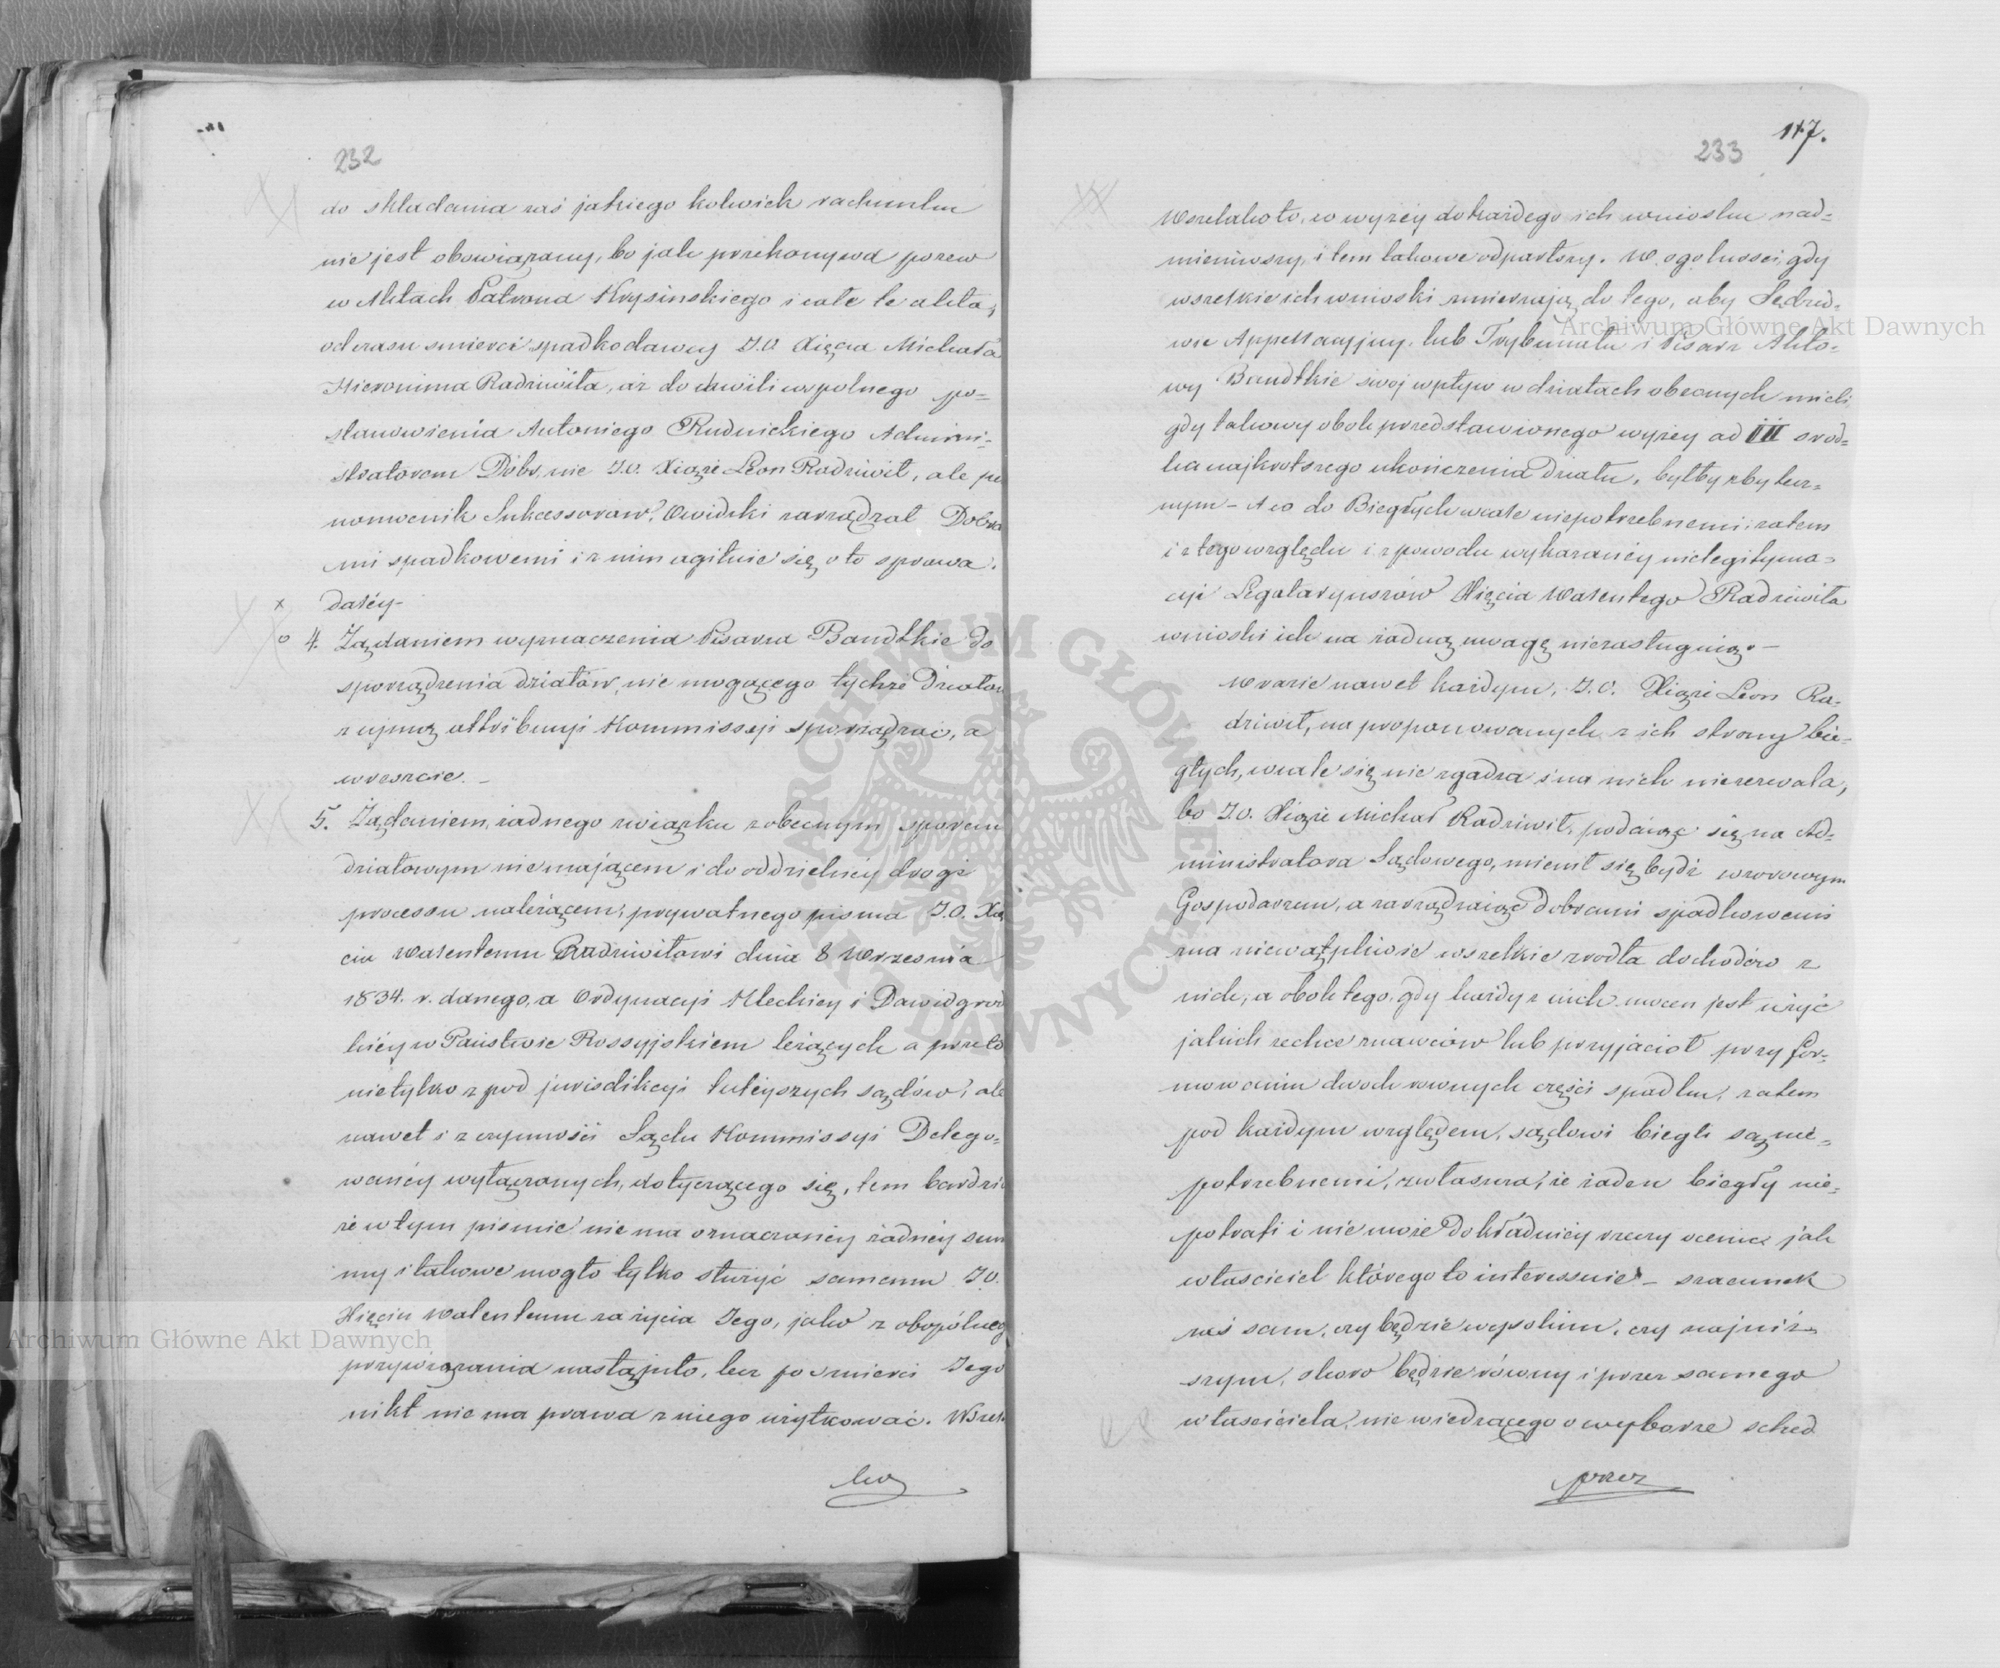 232
do składania zaś jakiego kolwiek rachunku
nie jest obowiązany, bo jak przekonywa pozew
w Aktach Patrona Krysińskiego i całe te akta,
od czasu smierci spadkodawcy J.O. Xięcia Michała
Hieronima Radziwiła, aż do chwili wspolnego po=
stanowienia Antoniego Rudnickiego Admini-
stratorem Dóbr, nie J.O. Xiąże Leon Radziwił, ale peł
nomocnik Sukcessorów, Owidzki zarządzał Dobra
mi spadkowemi i z nim agituie się o to sprawa.
x daléy-
o 4. Żądaniem wyznaczenia Pisarza Bandtkie do
sporządzenia działów, nie mogącego tychże działów
z ujmą attrybucyi Kommissyi sporządzać, a
wreszcie. -
5. Żądaniem, żadnego związku z obecnym sporem
działowym nie mającem i do oddzielnéy drogi
processu należącem, prywatnego pisma J.O. Xię
ciu Walentemu Radziwiłowi dnia 8 Września
1834. r. danego, a Ordynacyi Kleckiey i Dawidgrod
kiéy w Państwie Rossyjskiem leżących a przeto
nie tylko z pod jurisdikcyi tutéyszych sądów, ale
nawet i z czynności Sądu Kommissyi Delego=
wanéy wyłączonych, dotyczącego się, tem bardzié
że w tym pismie nie ma oznaczonéy żadnéy sum
my i takowe mogło tylko służyć samemu J.O.
Xięciu Walentemu za życia Jego, jako z obopólnego
przywiązania nastąpiło, lecz po smierci Jego
nikt nie ma prawa z niego użytkować. Wszel
ko
233
117.
Wszelako to, co wyżéy do każdego ich wniosku nad=
mieniwszy, i tem takowe odpartszy. W ogolności, gdy
wszelkie ich wnioski zmierzają do tego, aby Sędzio=
wie Appellacyjny, lub Trybunału i Pisarz Akto=
wy Bandtkie swoj wpływ w działach obecnych mieli
gdy takowy obok przedstawionego wyżey ad III srod=
ka najkrotszego ukończenia Działu, byłby zbytecz=
nym - A co do Biegłych wcale niepotrzebnemi: zatem
i z tego względu i z powodu wykazanéy nielegityma=
cyi Legataryuszów Xięcia Walentego Radziwiła
wnioski ich na żadną uwagę niezasługuią. -
W razie nawet każdym, J.O. Xiąże Leon Ra-
dziwił, na proponowanych z ich strony bie-
głych, wcale się nie zgadza i na nich niezezwala,
bo J.O. Xiąże Michał Radziwił, podaiąc się na Ad=
ministratora Sądowego, mienił się bydź wzorowym
Gospodarzem, a zarządzaiąc dobrami spadkowemi
zna niewątpliwie wszelkie zrodła dochodów z
nich, a obok tego, gdy każdy z nich mocen jest użyć
jakich zechce znawców lub przyjaciół przy for-
mowaniu dwoch rownych części spadku, zatem
pod każdym względem, sądowi biegli są nie=
potrzebnemi, zwłaszcza, że żaden biegły nie=
potrafi i nie może dokładniéy rzeczy ocenić jak
właściciel którego to interessuie - szacunek
zaś sam, czy będzie wysokim, czy najniż=
szym, skoro będzie równy i przez samego
właściciela, nie wiedzącego o wyborze sched
przez
Archiwum Główne Akt Dawnych
Archiwum Główne Akt Dawnych
ARCHIWUM GŁÓWNE AKT DAWNYCH